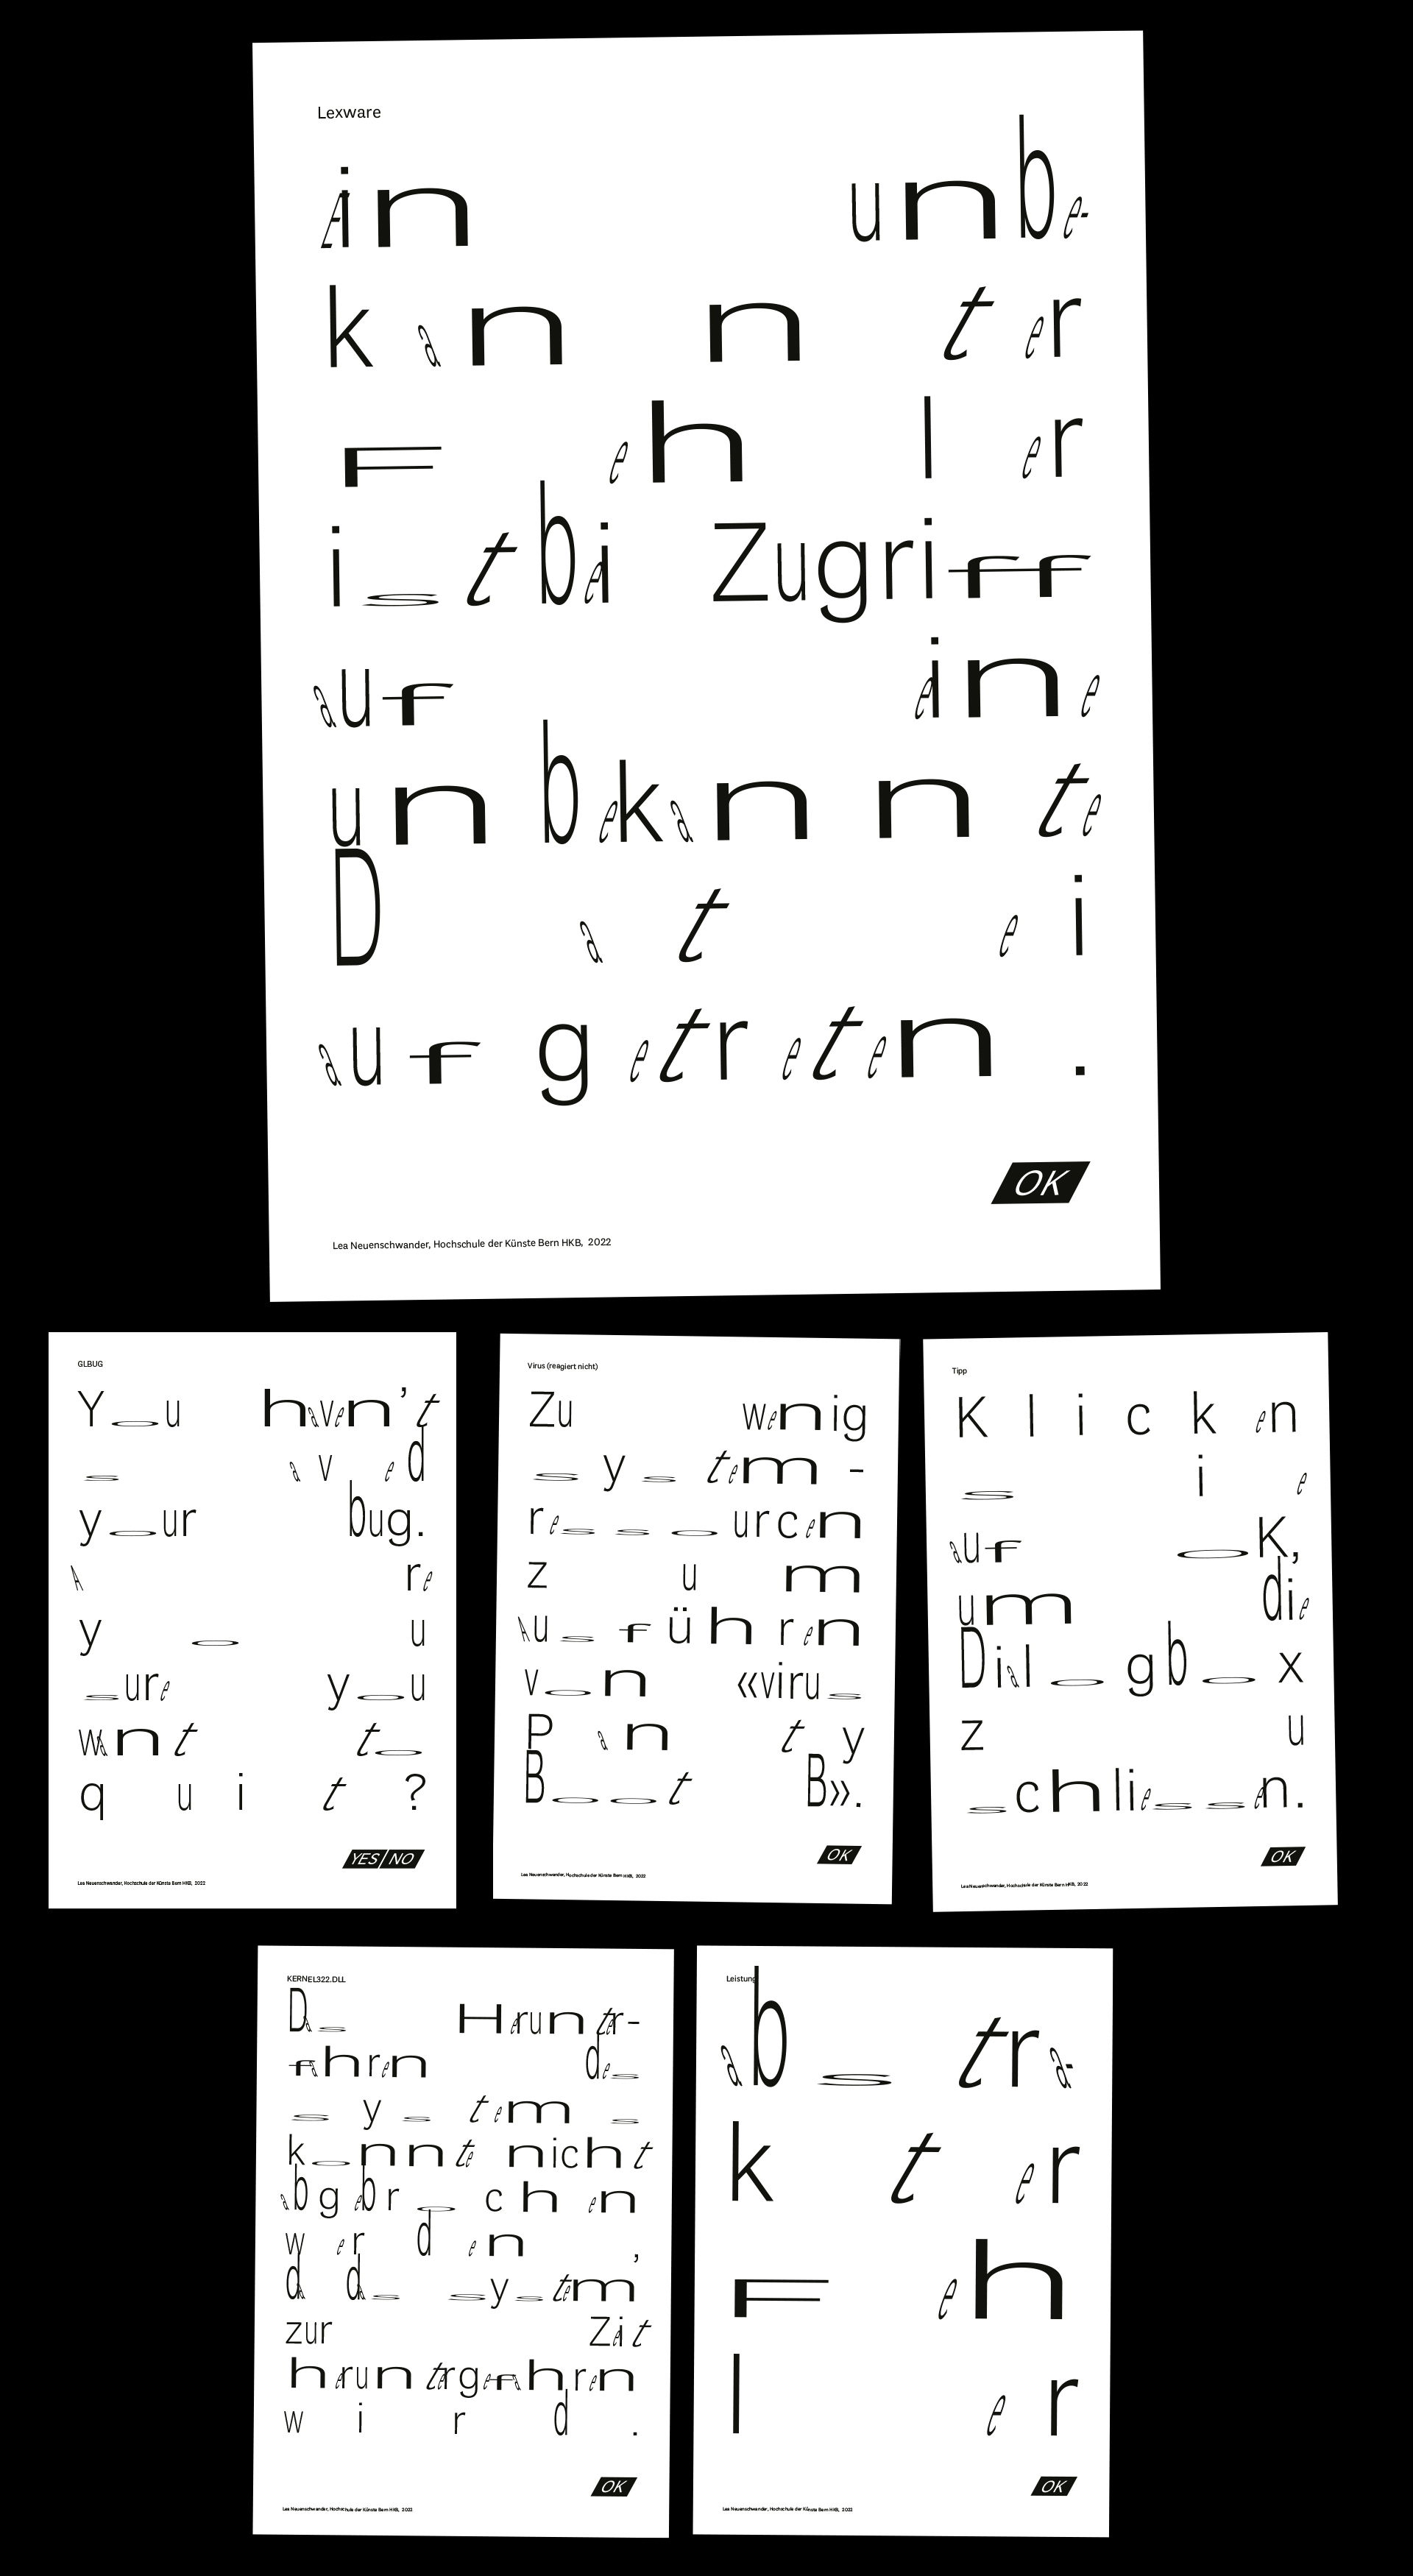 Lexware
Ein unbe-
kannter
Fehler
ist bei Zugriff
auf eine
unbekannte
Datei
aufgetreten.
OK
Lea Neuenschwander, Hochschule der Künste Bern HKB, 2022
GLBUG
You haven’t
saved
your bug.
Are
you
sure you
want to
quit?
YES/NO
Lea Neuenschwander, Hochschule der Künste Bern HKB, 2022
Virus (reagiert nicht)
Zu wenig
System-
ressourcen
zum
Ausführen
von «virus
Panty
Boot B».
OK
Lea Neuenschwander, Hochschule der Künste Bern HKB, 2022
Tipp
Klicken
Sie
auf OK,
um die
Dialogbox
zu
schliessen.
OK
Lea Neuenschwander, Hochschule der Künste Bern HKB, 2022
KERNEL322.DLL
Das Herunter-
fahren des
Systems
konnte nicht
abgebrochen
werden,
da das System
zur Zeit
heruntergefahren
wird.
OK
Lea Neuenschwander, Hochschule der Künste Bern HKB, 2022
Leistung
abstra-
kter
Feh
ler
OK
Lea Neuenschwander, Hochschule der Künste Bern HKB, 2022